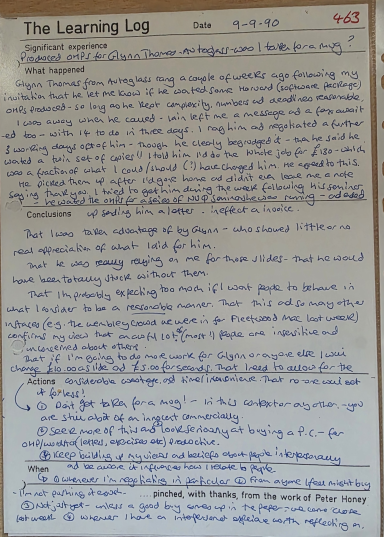 The Learning Log Date 9-9-90 463
Significant experience
Produced OHPs for Glynn Thomas - Autoglass - was I taken for a mug?
What happened
Glynn Thomas from Autoglass rang a couple of weeks ago following my
invitation that he let me know if he wanted some Harvard (software package)
OHPs produced - so long as he kept complexity, numbers and deadlines reasonable.
I was away when he called - left me a message and a fax await
ed too - with 14 to do in three days. I rang him and negotiated a further
3 working days out of him - though he clearly begrudged it - then he said he
wanted a twin set of copies! I told him I'd do the whole job for £130 - which
was a fraction of what I could/should (!) have charged him. He agreed to this.
He picked them up after I'd gone home and didn't even leave me a note
saying thank you. I tried to get him during the week following his seminar
- he wanted the OHPs for a series of seminars he was running - and ended
Conclusions up sending him a letter - in effect an invoice.
That I was taken advantage of by Glynn - who showed little or no
real appreciation of what I did for him.
That he was really relying on me for those slides - that he would
have been totally stuck without them.
That I'm probably expecting too much if I want people to behave in
what I consider to be a reasonable manner. That this and so many other
instances (e.g. the Wembley crowd we were in for Fleetwood Mac last week)
confirms my view that an awful lot (most?) people are insensitive and
unconcerned about others.
That if I'm going to do more work for Glynn or anyone else I will
charge £10.00 a slide and £5.00 for seconds. That I need to allow for the
Actions considerable wastage and time/inconvenience. That no-one will get
it for less!
① Don't get taken for a mug! - in this context or any other - you
are still a bit of an innocent commercially.
② Seek more of this and look seriously at buying a P.C. - for
OHP/words (letters, exercises etc) productive.
③ Keep building up my views and beliefs about people interpersonally
and be aware it influences how I relate to people.
When
① whenever I'm negotiating in particular ② from anyone I feel might buy
- I'm not pushing it
....pinched, with thanks, from the work of Peter Honey
③ Not just yet - unless a good buy comes up in the paper - we came close
last week ④ whenever I have an interpersonal experience worth reflecting on.